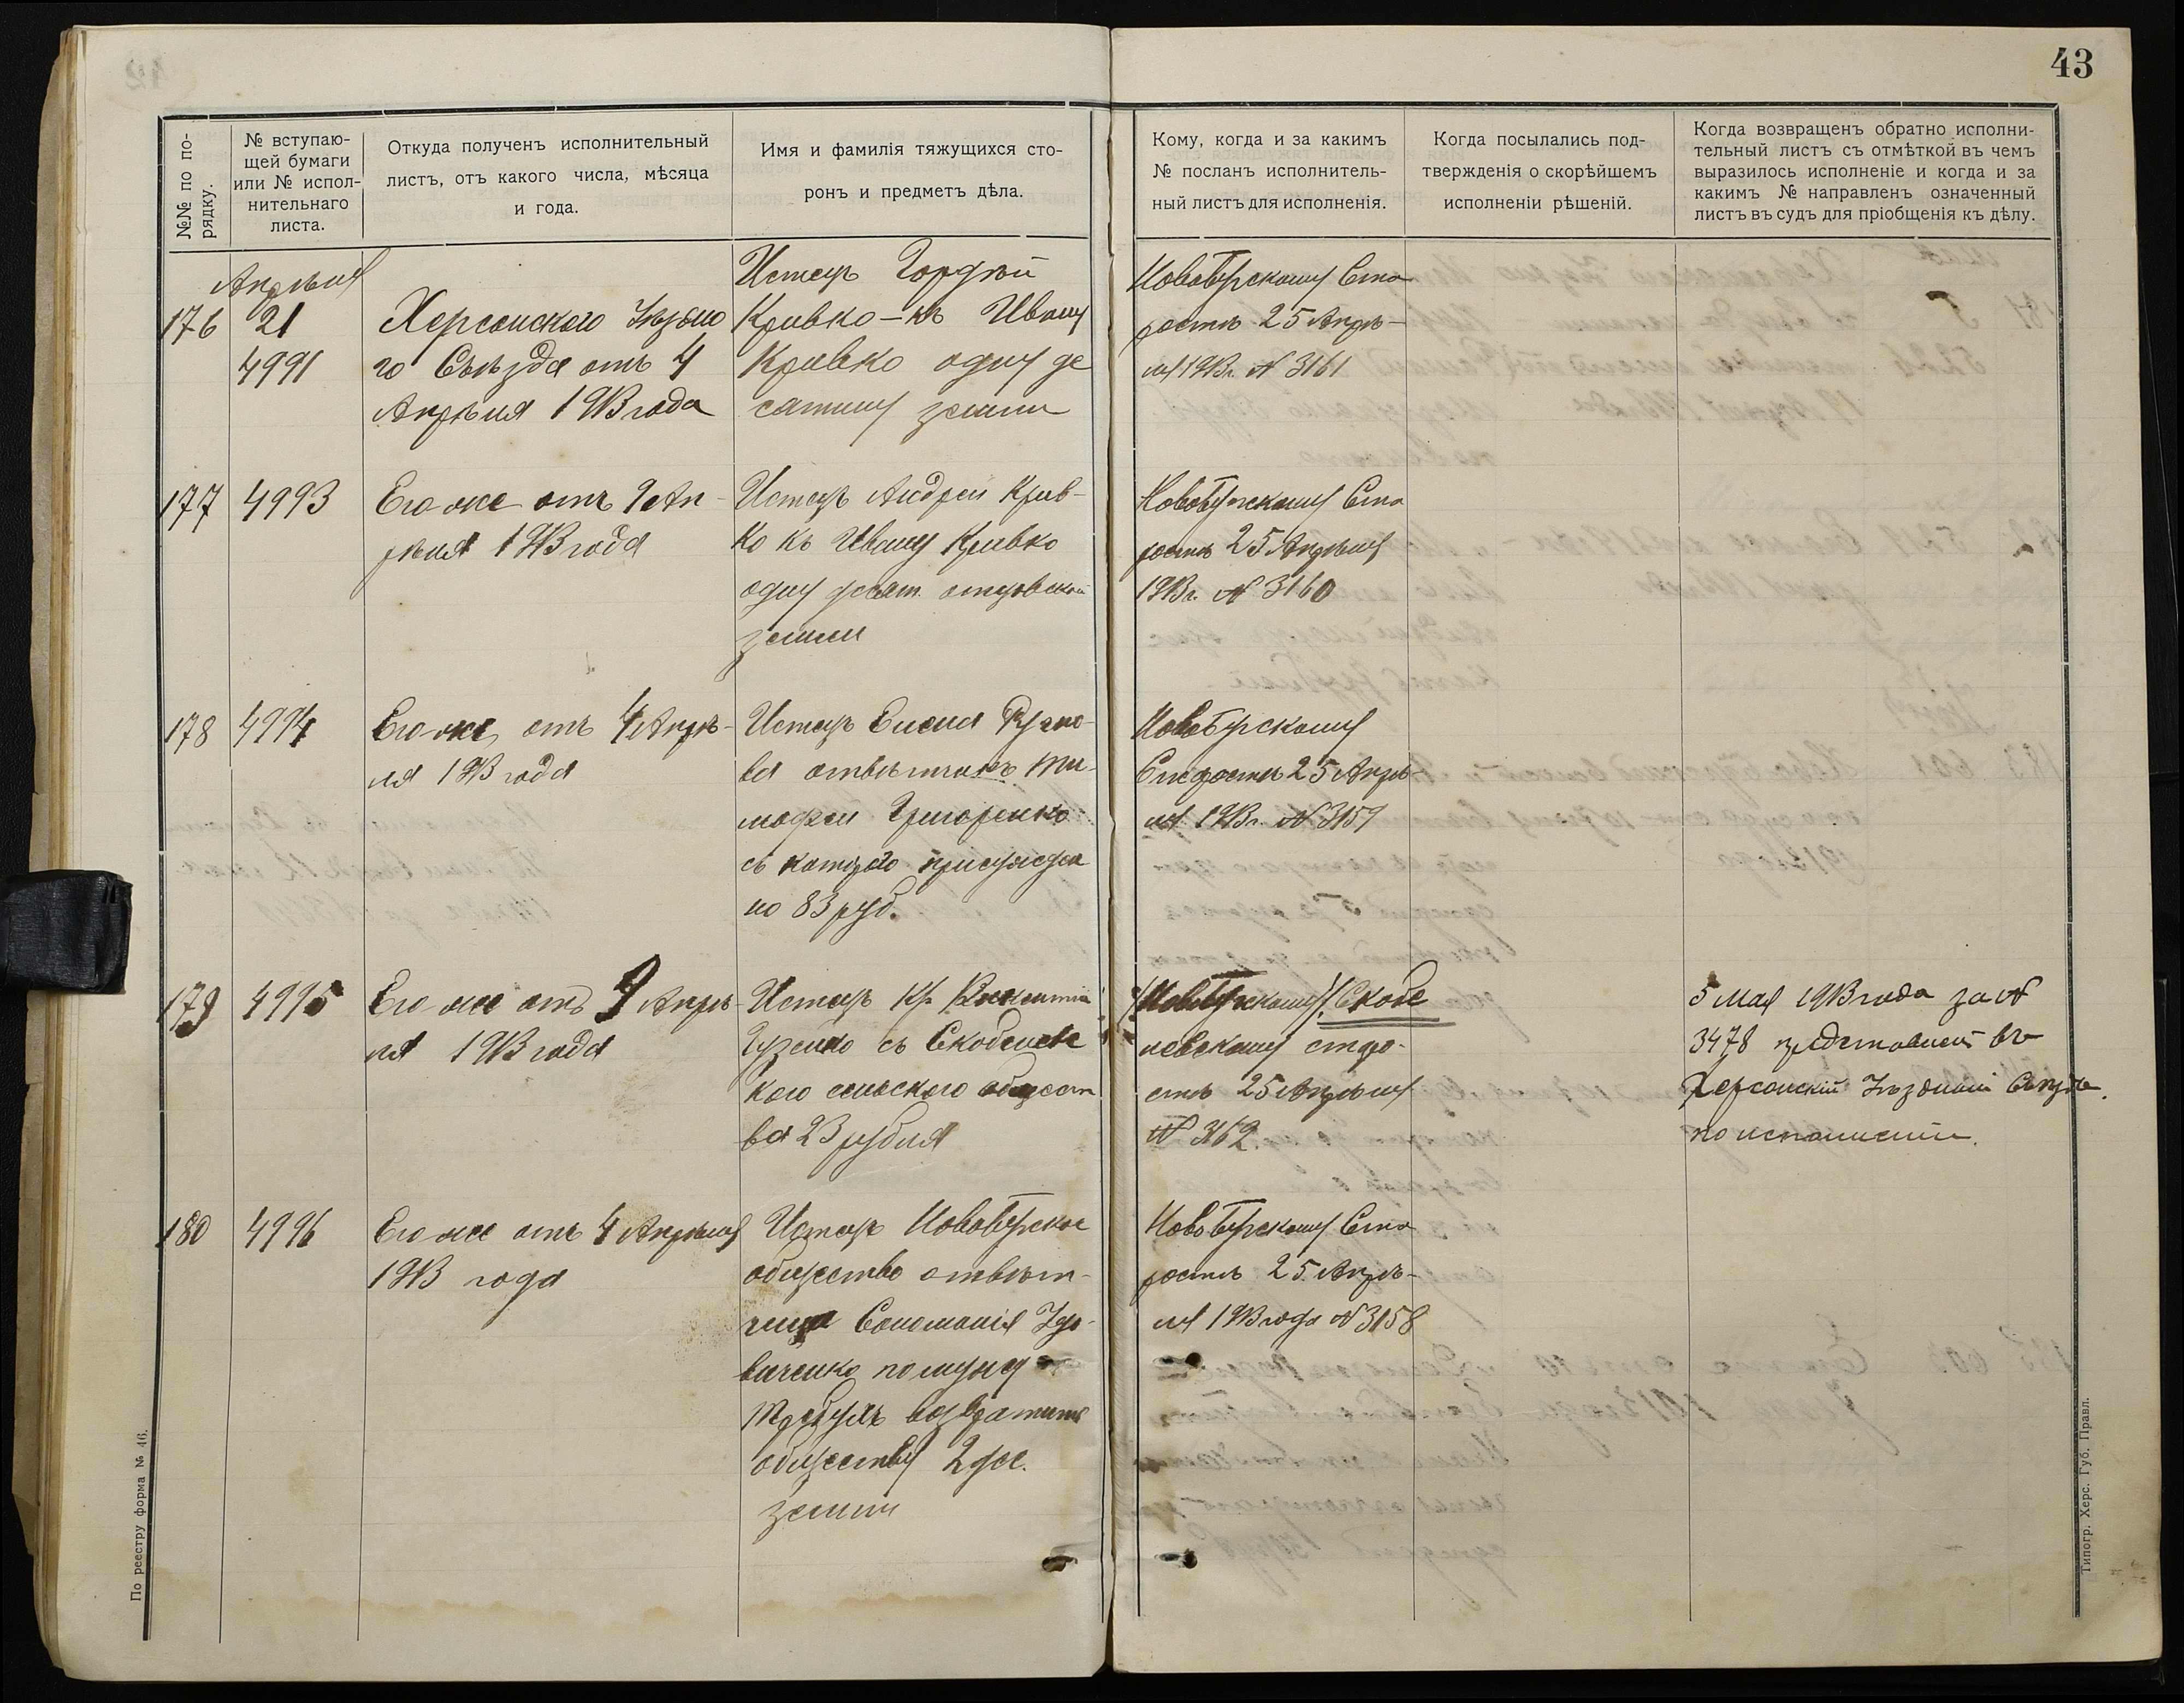 43
№№ по по-
рядку.
№ вступаю-
щей бумаги
или № испол-
нительнаго
листа.
Откуда полученъ исполнительный
листъ, отъ какого числа, мѣсяца
и года.
Имя и фамилія тяжущихся сто-
ронъ и предметъ дѣла.
Кому, когда и за какимъ
№ посланъ исполнитель-
ный листъ для исполненія.
Когда посылались под-
твержденія о скорѣйшемъ
исполненіи рѣшеній.
Когда возвращенъ обратно исполни-
тельный листъ съ отмѣткой въ чемъ
выразилось исполненіе и когда и за
какимъ № направленъ означенный
листъ въ судъ для пріобщенія къ дѣлу.
Апрѣля
176
21
4991
Херсонскаго Уѣздна
го Съѣзда отъ 4
Апрѣля 1913 года
Истецъ Гордѣй
Кривко - къ Ивану
Кривко одну де
сятину земли
Новобугскому Ста
ростѣ 25 Апрѣ-
ля 1913 г. № 3161
177
4993
Его же отъ Ап-
рѣля 1913 года
Истецъ Андрей Крив-
ко къ Ивану Кривко
одну десят. отцовской
земли
Новобугскому Ста
ростѣ 25 Апрѣля
1913 г. № 3160
178
4994
Его же, отъ 4 Апрѣ-
ля 1913 года
Истецъ Елена
ва отвѣтчикъ Ти-
мофей Григоренко
съ котораго присужде
но 83 руб.
Новобугскому
Старостѣ 25 Апрѣ-
ля 1913 г. № 3159
179
4995
Его же отъ 9 Апрѣ-
ля 1913 года
Истецъ Кр.
съ Скобелевс
кого сельского общест
ва 23 рубля
Новобугскому Скобе
левскому старо-
стѣ 25 Апрѣля
№ 3162.
5 Мая 1913 года за №
3478 представленъ въ
Херсонскій Уѣздный Съѣздъ.
по исполненіи.
180
4996
Его же отъ 4 Апрѣля
1913 года
Истецъ Новобугское
общество отвѣт-
чица Соломонія Удо-
виченко
возвратить
обществу 2 дес.
земли
Новобугскому Ста
ростѣ 25 Апрѣ-
ля 1913 года № 3158
По реестру форма № 46.
Типогр. Херс. Губ. Правл.